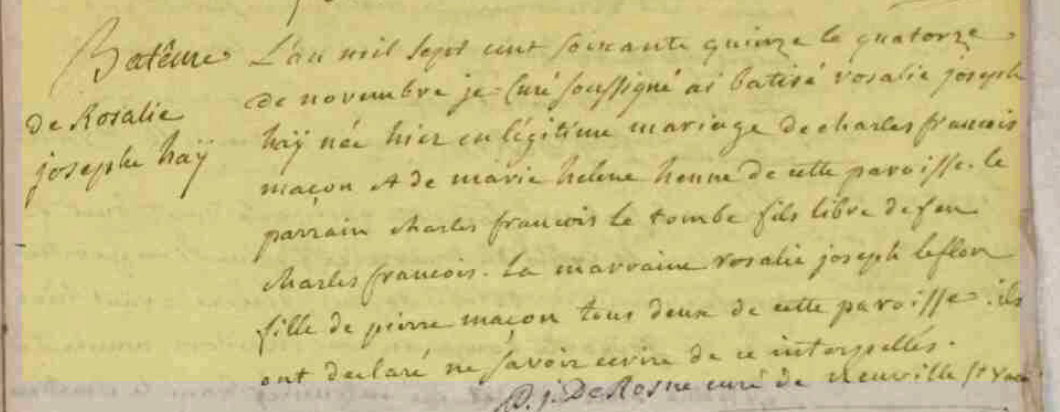 Batême
de Rosalie
josephe haÿ
L'an mil sept cent soixante quinze le quatorze
de novembre je Curé soussigné ai batisé rosalie joseph
haÿ née hier en légitime mariage de charles francois
maçon et de marie helene henne de cette paroisse. le
parrain charles francois le tombe fils libre de feu
charles francois. La marraine rosalie joseph leflon
fille de pierre maçon tous deux de cette paroisse. ils
ont declaré ne savoir ecrire de ce interpellés.
P. j. DeRosne curé de neuville St vaa